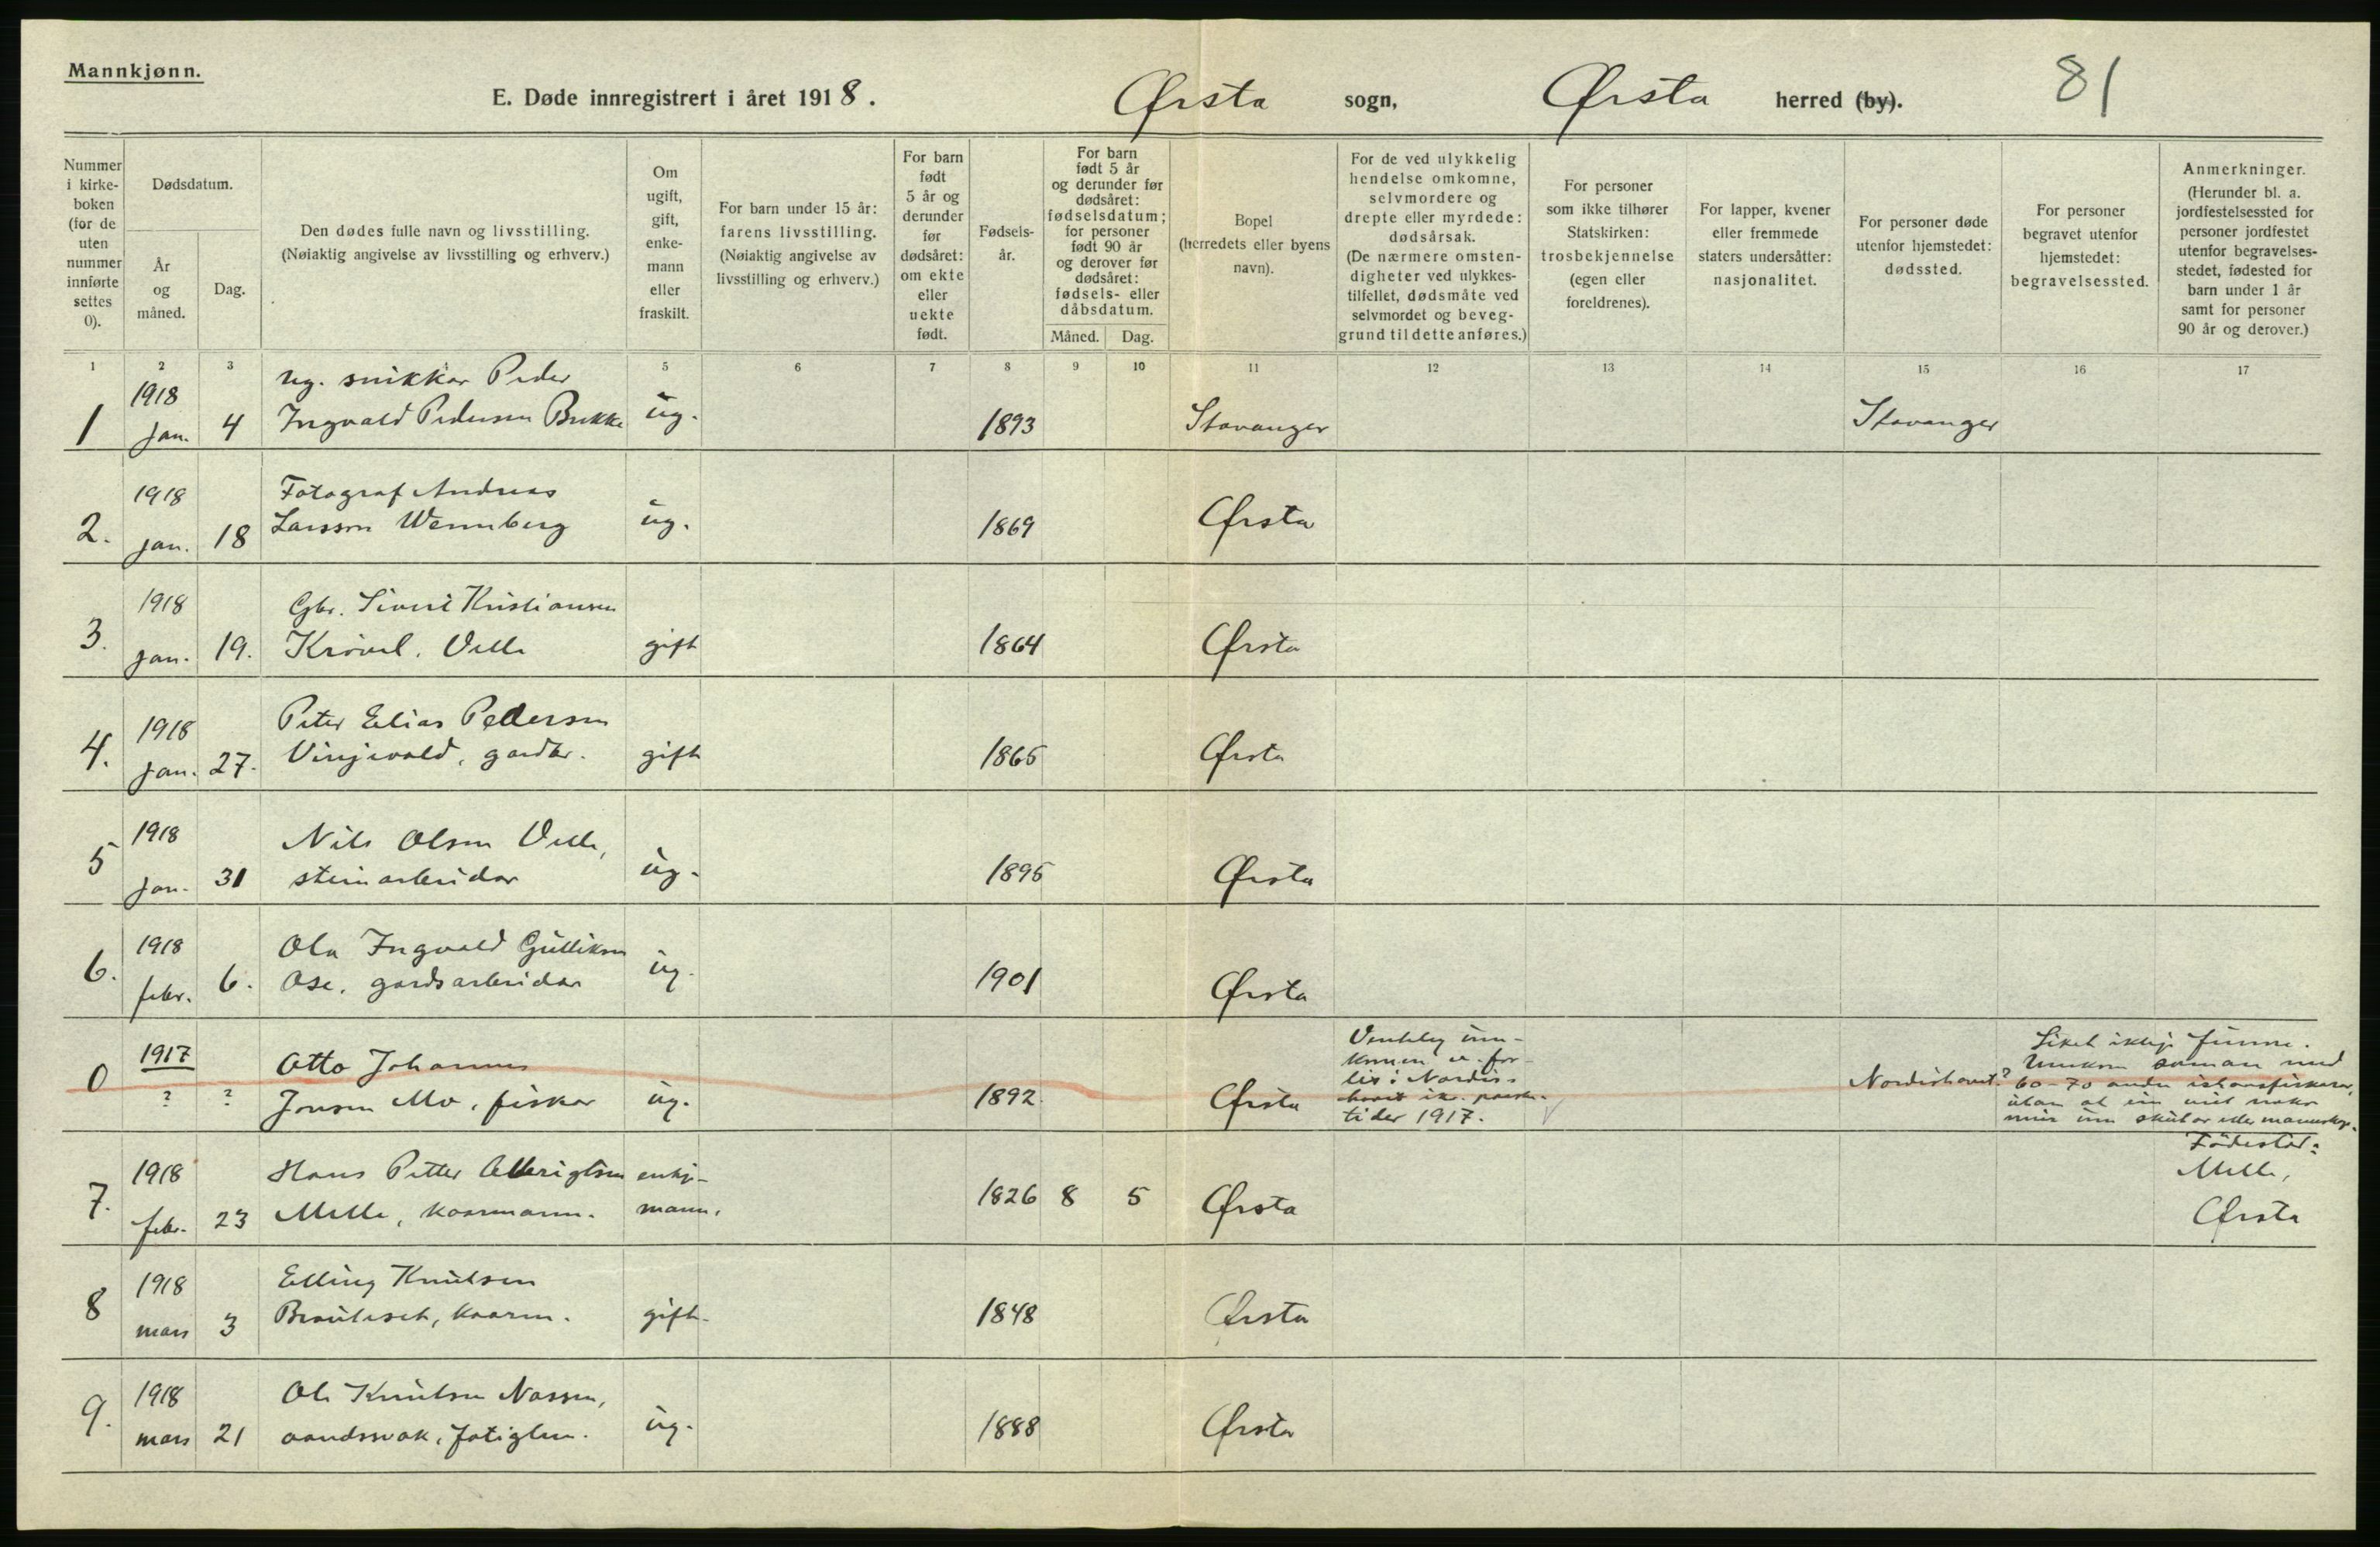 Mannkjønn.
E. Døde innregistrert i året 1918. Ørsta sogn, Ørsta herred (by). 81
Nummer i kirke-boken (for de uten nummer innførte settes 0).
Dødsdatum.
År og måned.
Dag.
Den dødes fulle navn og livsstilling.
(Nøiaktig angivelse av livsstilling og erhverv.)
Om ugift, gift, enke-mann eller fraskilt.
For barn under 15 år: farens livsstilling. (Nøiaktig angivelse av livsstilling og erhverv.)
For barn født 5 år og derunder før dødsåret: om ekte eller uekte født.
Fødsels-år.
For barn født 5 år og derunder før dødsåret: fødselsdatum; for personer født 90 år og derover før dødsåret: fødsels- eller dåbsdatum.
Måned. Dag.
Bopel (herredets eller byens navn).
For de ved ulykkelig hendelse omkomne, selvmordere og drepte eller myrdede: dødsårsak. (De nærmere omsten-digheter ved ulykkes-tilfellet, dødsmåte ved selvmordet og beveg-grund til dette anføres.)
For personer som ikke tilhører Statskirken: trosbekjennelse (egen eller foreldrenes).
For lapper, kvener eller fremmede staters undersåtter: nasjonalitet.
For personer døde utenfor hjemstedet: dødssted.
For personer begravet utenfor hjemstedet: begravelsessted.
Anmerkninger. (Herunder bl. a. jordfestelsessted for personer jordfestet utenfor begravelses-stedet, fødested for barn under 1 år samt for personer 90 år og derover.)
1 2 3 5 6 7 8 9 10 11 12 13 14 15 16 17
1918 ug. snikkar Peder
1 jan. 4 Ingvald Pedersen Brekke ug. 1893 Stavanger Stavanger
1918 Fotograf Andreas
2. jan. 18 Larsson Wennberg ug. 1869 Ørsta
1918 Gbr. Sivert Kristiansen
3. jan. 19. Krøvel. Velle gift 1864 Ørsta
1918 Peter Elias Pedersen
4. jan. 27. Vinjevold, gardbr. gift 1865 Ørsta
1918 Nils Olsen Velle,
5 jan. 31 steinarbeidar ug. 1895 Ørsta
1918 Ola Ingvald Gulliksen
6. febr. 6. Ose, gardsarbeidar ug. 1901 Ørsta
1917 Otto Johannes
0 ? ? Jonsen Mo, fiskar ug. 1892 Ørsta
Venteleg um-
komen v. for-
lis i Nordis-
havet ikr. paaske-
tider 1917.
Nordishavet?
Liket ikkje funne.
Umkom saman med
60-70 andre ishavsfiskarar,
utan at ein veit noko
meir um skutor eller mannskap.
1918 Hans Petter enkje-
7. febr. 23 Melle, kaarmann. mann. 1826 8 5 Ørsta
Fødestad:
Melle,
Ørsta
1918 Elling Knutsen
8 mars 3 Brauteset, kaarm. gift. 1848 Ørsta
1918 Ole Knutsen Nassen,
9. mars 21 aandssvak, fatiglem. ug. 1888 Ørsta